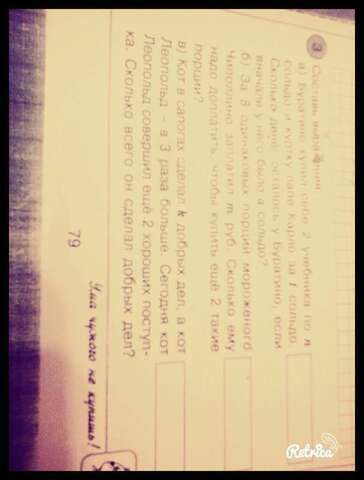 3 Составь выражения
а) Буратино купил себе 2 учебника по n
сольдо и куртку папе Карло за t сольдо
Сколько денег осталось у Буратино, если
вначале у него было a сольдо?
б) За 8 одинаковых порций мороженого
Чиполлино заплатил m руб. Сколько ему
надо доплатить, чтобы купить ещё 2 такие
порции?
в) Кот в сапогах сделал k добрых дел, а кот
Леопольд – в 3 раза больше. Сегодня кот
Леопольд совершил ещё 2 хороших поступ-
ка. Сколько всего он сделал добрых дел?
79
Ума чужого не купишь!
Retrica